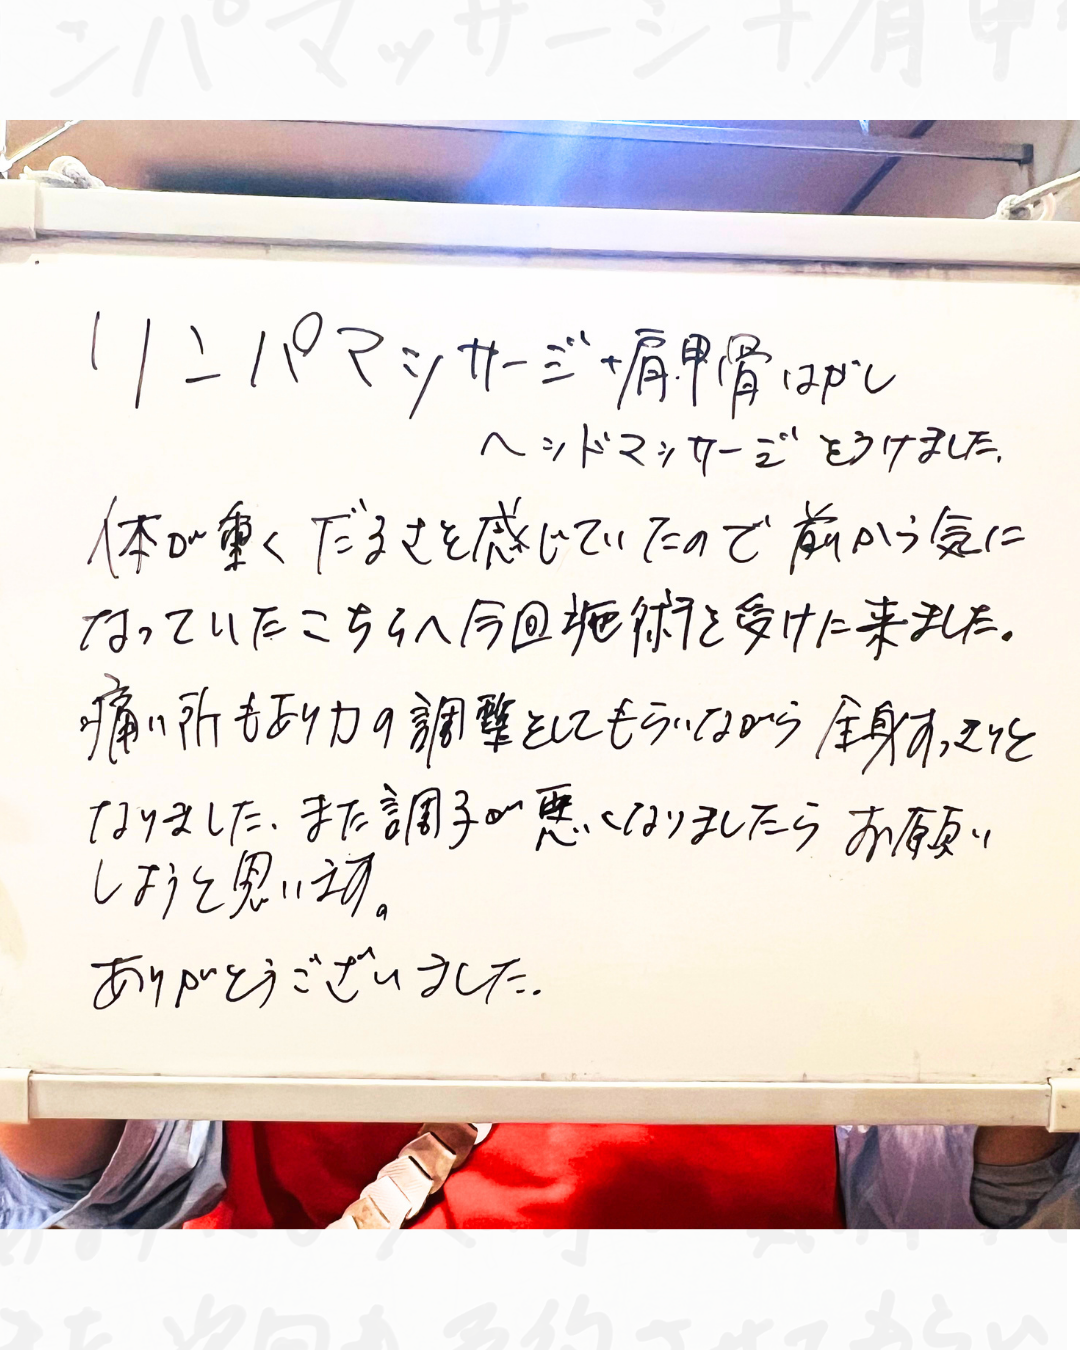 ンパマッサージ+肩甲
リンパマッサージ+肩甲骨はがし
ヘッドマッサージをうけました。
体が重くだるさを感じていたので前から気に
なっていたこちらへ今回施術を受けに来ました。
痛い所もあり力の調整をしてもらいながら全身すっきりと
なりました、また調子が悪くなりましたらお願い
しようと思います。
ありがとうございました.
また次回も予約させてもらい